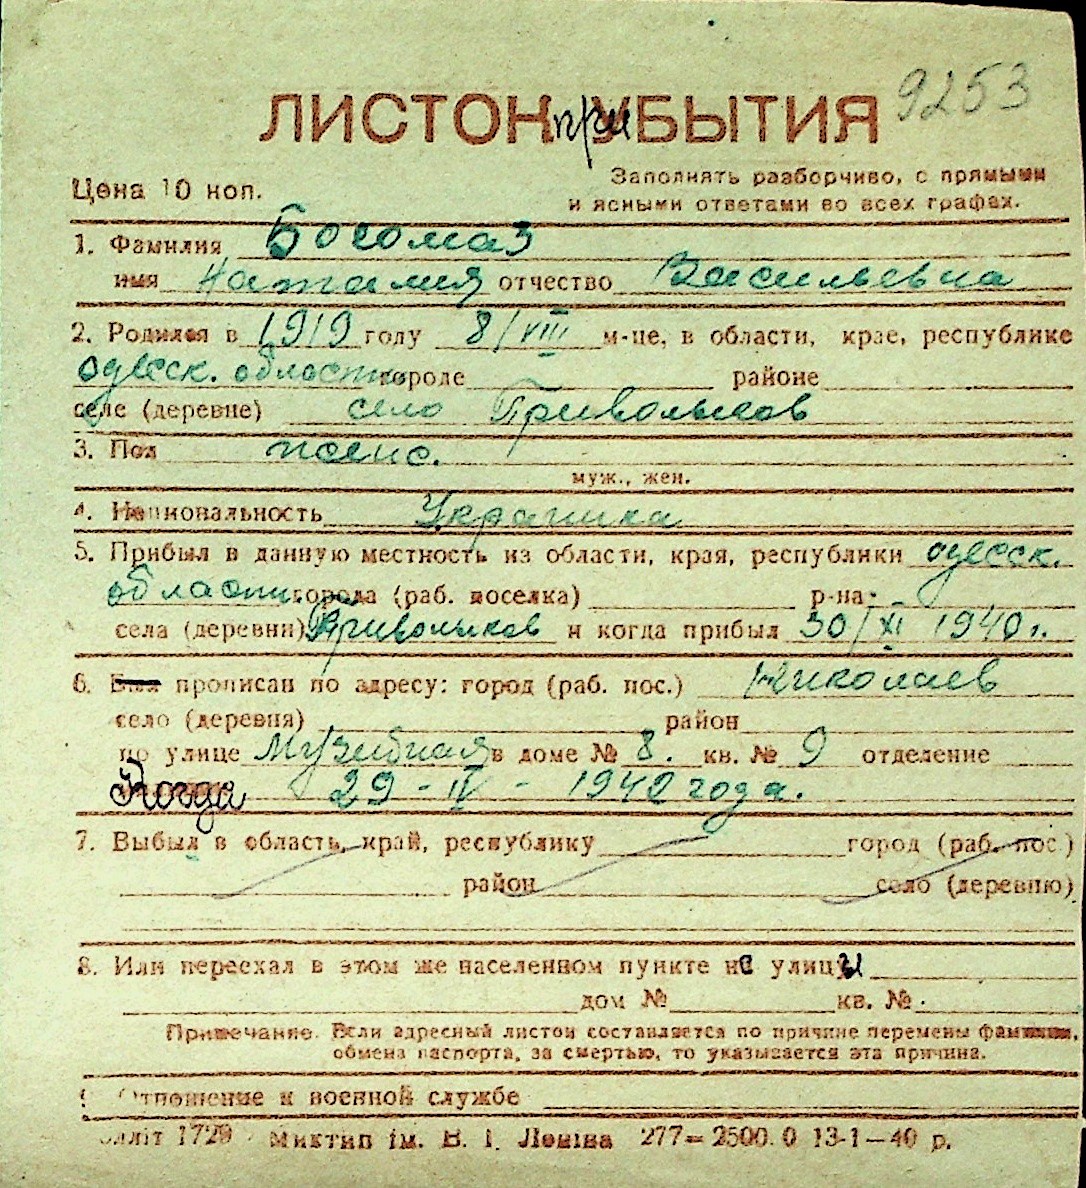 9253
ЛИСТОК приБЫТИЯ
Цена 10 коп.
Заполнять разборчиво, с прямыми
и ясными ответами во всех графах.
1. Фамилия Богомаз
имя Наталия отчество Васильевна
2. Родился в 1919 году 8/VIII м-це, в области, крае, республике
Одесск. области городе районе
селе (деревне) село Привольков
3. Пол женс.
муж., жен.
4. Национальность Украинка
5. Прибыл в данную местность из области, края, республики Одесск.
области города (раб. поселка) р-на
села (деревни) Привольков и когда прибыл 30/XI 1940 г.
6. Был прописан по адресу: город (раб. пос.) Николаев
село (деревня) район
по улице в доме № 8. кв. № 9 отделение
Когда 29-IV-1942 года.
7. Выбыл в область, край, республику город (раб. пос)
район село (деревню)
8. Или переехал в этом же населенном пункте нс улицы
дом № кв. №
Примечание. Если адресный листок составляется по причине перемены фамилии,
обмена паспорта, за смертью, то указывается эта причина.
9. Отношение к военной службе
1729 Миктип ім. В. І. Леніна 277—2500.0 13-1—40 р.